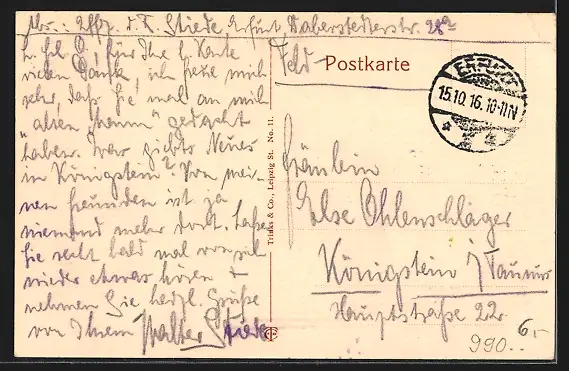 Abs.: Offz. d. R. Stiede, Erfurt Daberstedterstr. 28a
L. Frl. O., für Ihre l. Karte
vielen Dank, ich freue mich
sehr, daß Sie mal an mich
"alten Mann" gedacht
haben. Was giebts Neues
in Königstein? Von mei-
nen Freunden ist ja
niemand mehr dort. Lassen
Sie recht bald mal von sich
wieder etwas hören +
nehmen Sie herzl. Grüße
von Ihrem Walter Stiede
Trinks & Co., Leipzig St. No. 11.
Feld- Postkarte
ERFURT
15.10.16.10-11N
Fräulein
Else Ohlenschläger
Königstein i/Taunus
Hauptstraße 22.
6,-
990..